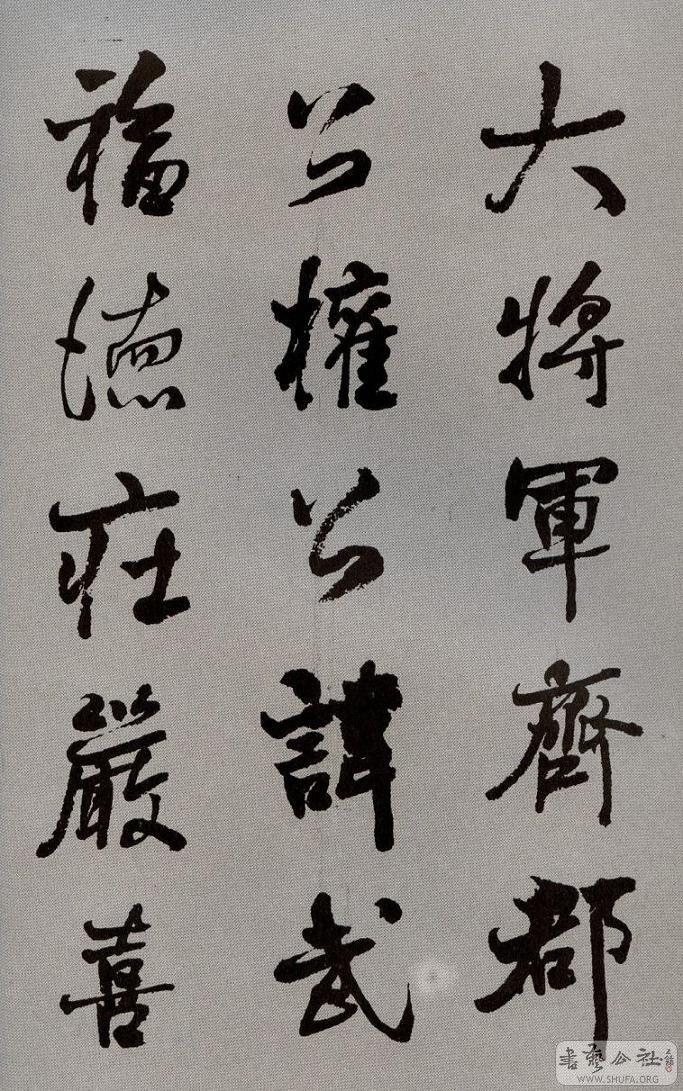 大將軍齊都
公權公諱武
福德莊嚴喜
書藝公社
WWW.SHUFA.ORG